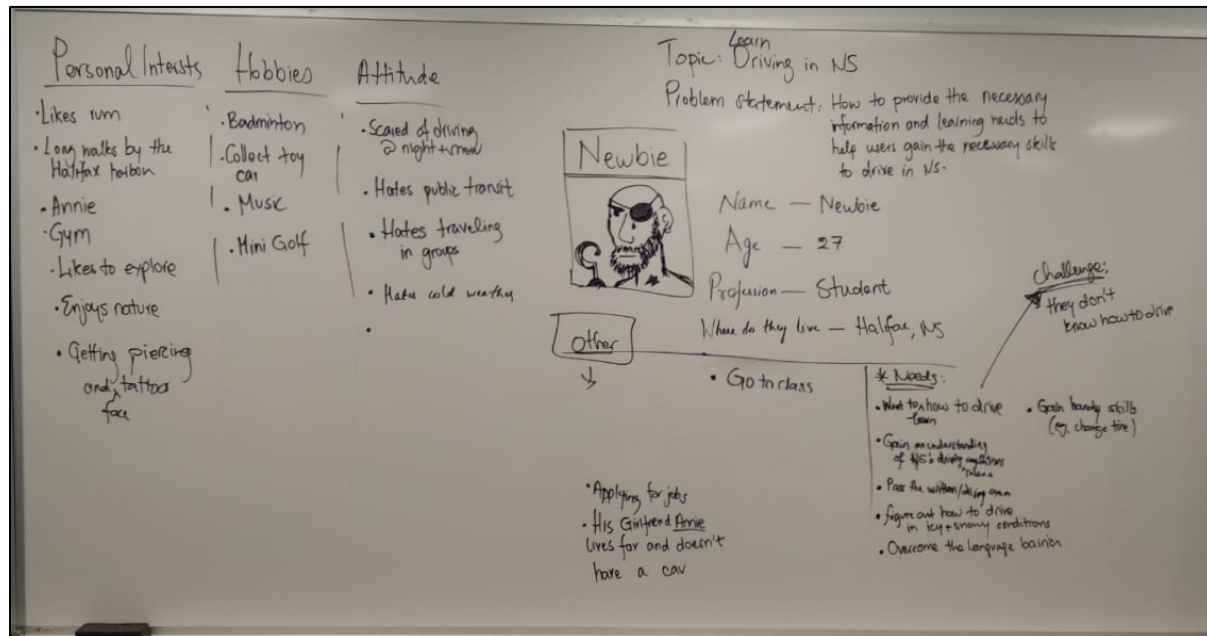 Personal Intersts
• Likes rum
• Long walks by the
Halifax
• Annie
• Gym
• Likes to explore
• Enjoys nature
• Getting piercing
and face tattoo
Hobbies
• Badminton
• Collect toy
car
• Music
• Mini Golf
Attitude
• Scared of driving
@ night
• Hates public transit
• Hates traveling
in groups
• Hates cold weather
Topic: Learn Driving in NS
Problem statement: How to provide the necessary
information and learning needs to
help users gain the necessary skills
to drive in NS.
Newbie
Name — Newbie
Age — 27
Profession — Student
Where do they live — Halifax, NS
Other
• Go to class
• Applying for jobs
• His Girlfriend Annie
lives far and doesn't
have a car
* Needs:
• Want to learn how to drive
• Gain an understanding
of NS's driving
• Pass the written/driving exam
• figure out how to drive
in icy + snowy conditions
• Overcome the language barrier
• Gain handy skills
(eg, change tire)
Challenge:
they don't
know how to drive